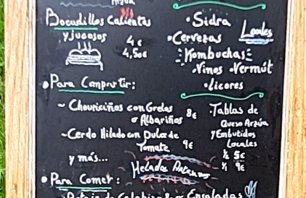 Bocadillos Calientes
y jugosos
4€
4,50€
• Para Compartir:
~ Chouriciñas con Grelos
o Albariños 8€
~ Cerdo Hilado con Dulce de
Tomate 9€
y más...
• Para Comer:
• Sidra
• Cervezas Locales
• Kombuchas
• Vinos • Vermút
• Licores
Tablas de
Queso Arzúa
y Embutidos
Locales
½ 5€
Helados Artesanos
Ensaladas